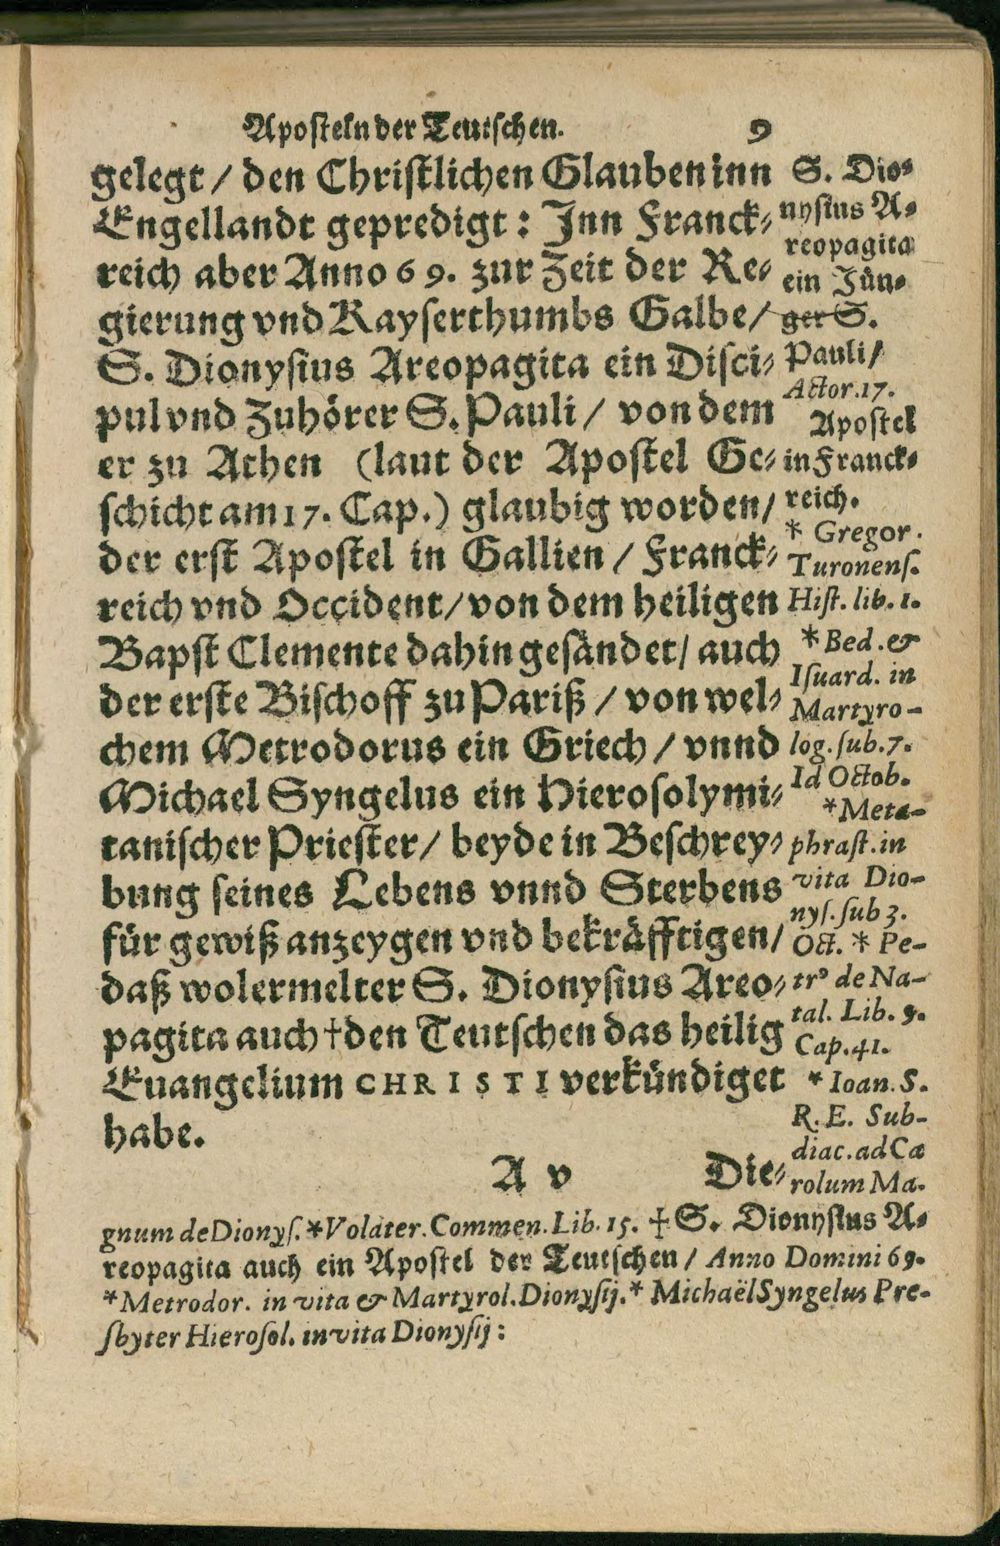 Aposteln der Teutschen. 9
gelegt / den Christlichen Glauben inn
Engellandt gepredigt : Inn Franck⸗
reich aber Anno 69. zur Zeit der Re⸗
gierung vnd Kayserthumbs Galbe /
S. Dionysius Areopagita ein Disci⸗
pul vnd Zuhörer S. Pauli / von dem
er zu Athen (laut der Apostel Ge⸗
schicht am 17. Cap.) glaubig worden /
der erst Apostel in Gallien / Franck⸗
reich vnd Occident / von dem heiligen
Bapst Clemente dahin gesändet / auch
der erste Bischoff zu Pariß / von wel⸗
chem Metrodorus ein Griech / vnnd
Michael Syngelus ein Hierosolymi⸗
tanischer Priester / beyde in Beschrey⸗
bung seines Lebens vnnd Sterbens
für gewiß anzeygen vnd bekräfftigen /
daß wolermelter S. Dionysius Areo⸗
pagita auch † den Teutschen das heilig
Euangelium CHRISTI verkündiget
habe.
A v Die⸗
S. Dio⸗
nysius A⸗
reopagita
ein Jün⸗
ger S.
Pauli /
Actor. 17.
Apostel
in Franck⸗
reich.
* Gregor.
Turonens.
Hist. lib. 1.
* Bed. &
Isuard. in
Martyro-
log. sub. 7.
Id Octob.
* Meta-
phrast. in
vita Dio-
nys. sub 3.
Oct. * Pe-
tr⁹ de Na-
tal. Lib. 9.
Cap. 41.
* Ioan. S.
R. E. Sub-
diac. ad Ca
rolum Ma-
gnum de Dionys. * Volater. Commen. Lib. 15. † S. Dionysius A⸗
reopagita auch ein Apostel der Teutschen / Anno Domini 69.
* Metrodor. in vita & Martyrol. Dionysij. * Michaël Syngelus Pre-
sbyter Hierosol. in vita Dionysij :